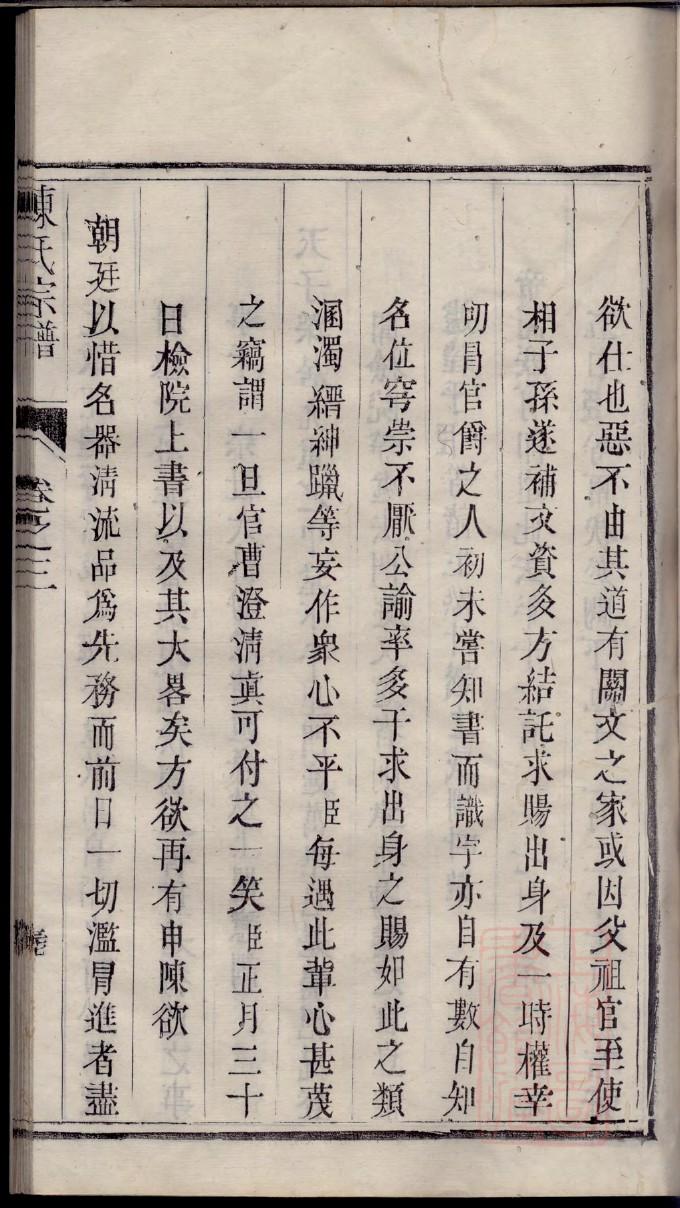 欲仕也惡不由其道有關文之家或因父祖官至使
相子孫遂補文資多方結託求賜出身及一時權幸
叨冒官爵之人初未嘗知書而識字亦自有數自知
名位穹崇不厭公諭率多干求出身之賜如此之類
溷濁縉紳躐等妄作衆心不平臣每遇此輩心甚蔑
之竊謂一旦官曹澄淸眞可付之一笑臣正月三十
日檢院上書以及其大畧矣方欲再有申陳欲
朝廷以惜名器淸流品爲先務而前日一切濫冒進者盡
陳氏宗譜
卷之三